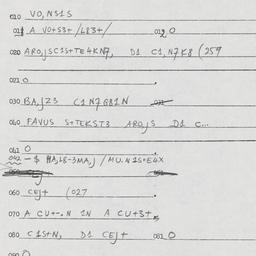 010 VO,NS1S
011 A VO+S3+/L83+/ 012 0
020 ARO,SC1S+TE4KN7, D1 C1,N7K8 (259
021 0
030 BA,JZ3 C1N7G81N 031
040 FAVUS S+TEKST3 ARO,S D1 C...
041 0
042 - $ MA,L8-3MA,J / MU.N1S+E4X
060 CEJ+ (027
070 A CU+-.N 1N A CU+3+,
080 C1S+N, D1 CEJ+ 081 0
090 0